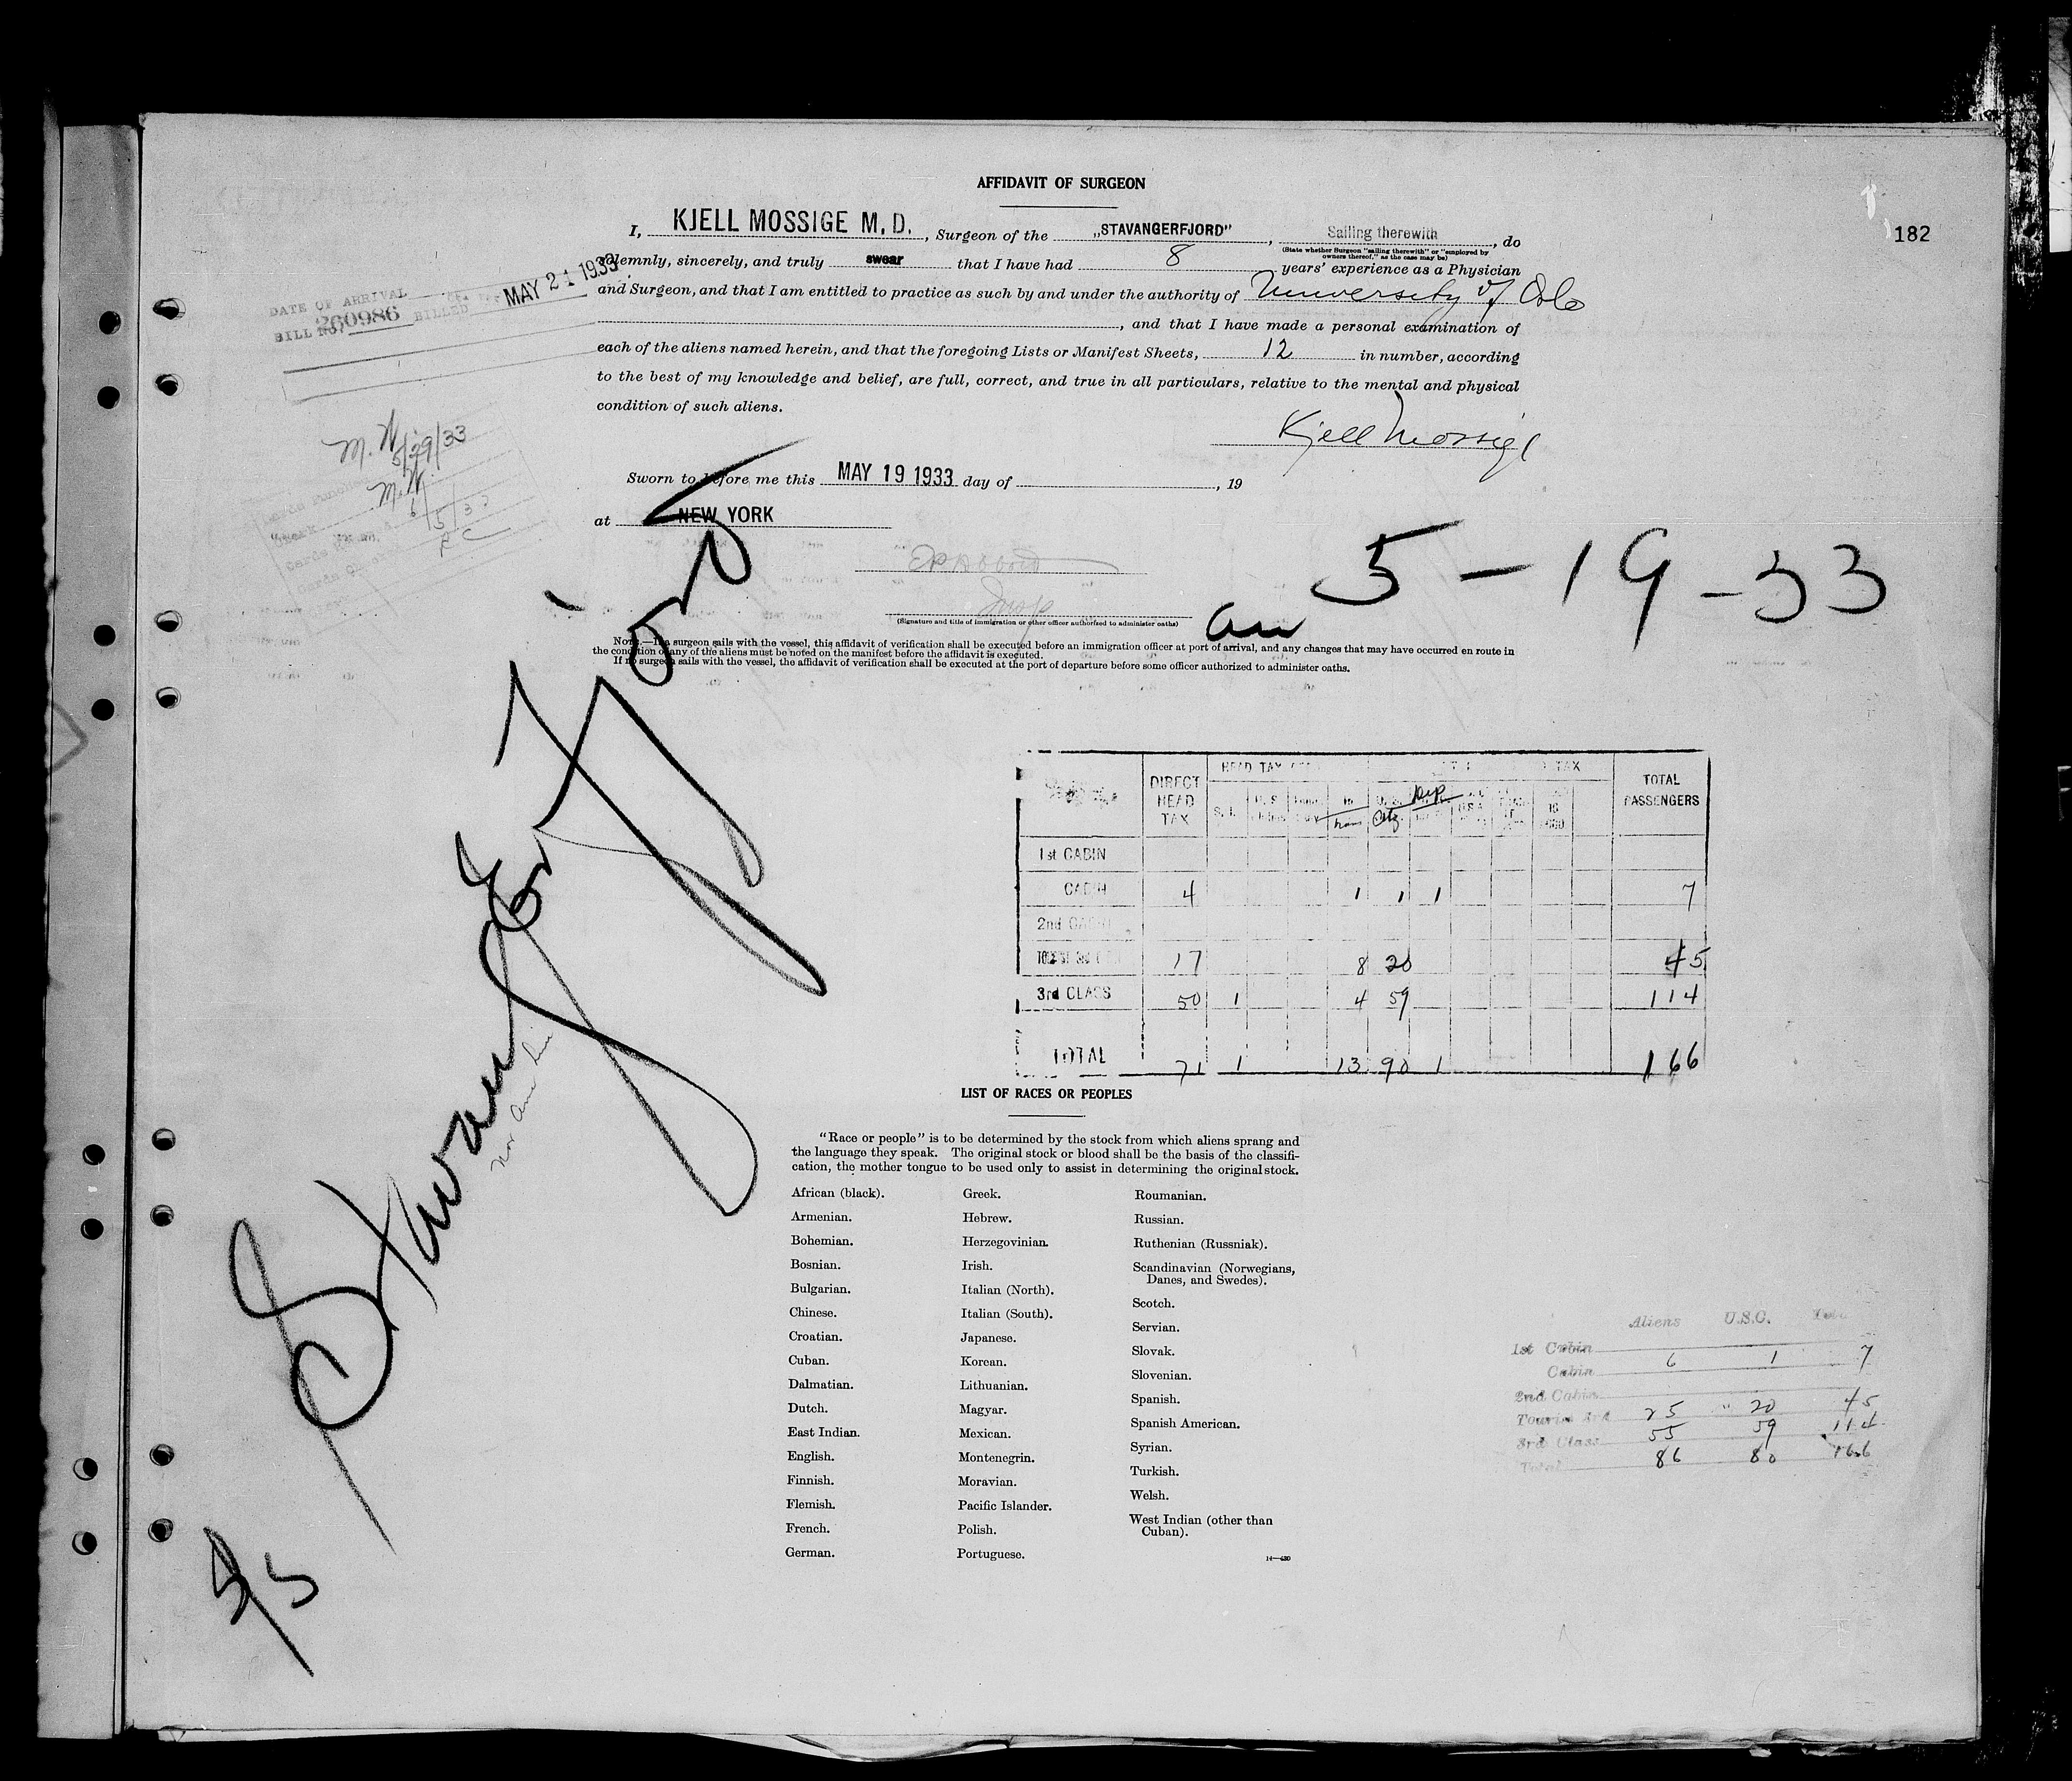 AFFIDAVIT OF SURGEON
182
I, KJELL MOSSIGE M. D., Surgeon of the „STAVANGERFJORD", Sailing therewith, do
(State whether Surgeon "sailing therewith" or "employed by owners thereof," as the case may be)
solemnly, sincerely, and truly swear that I have had 8 years' experience as a Physician
and Surgeon, and that I am entitled to practice as such by and under the authority of University of Oslo
, and that I have made a personal examination of
each of the aliens named herein, and that the foregoing Lists or Manifest Sheets, 12 in number, according
to the best of my knowledge and belief, are full, correct, and true in all particulars, relative to the mental and physical
condition of such aliens.
Kjell Mossige
DATE OF ARRIVAL
MAY 21 1933
BILL NO. 260986 BILLED
M.N. 5/29/33
M.N.
6/5/33
RC
Sworn to before me this MAY 19 1933 day of , 19
at NEW YORK
Insp
(Signature and title of immigration or other officer authorized to administer oaths)
5-19-33
Note.—If a surgeon sails with the vessel, this affidavit of verification shall be executed before an immigration officer at port of arrival, and any changes that may have occurred en route in
the condition of any of the aliens must be noted on the manifest before the affidavit is executed.
If no surgeon sails with the vessel, the affidavit of verification shall be executed at the port of departure before some officer authorized to administer oaths.
Stavangerfjord
S/S
nor am line
DIRECT HEAD TAX HEAD TAX TAX TOTAL PASSENGERS
S.I. In trans U.S. Citz Dip
1st CABIN
CABIN 4 1 1 1 7
2nd CABIN
TOURIST 3rd 17 8 20 45
3rd CLASS 50 1 4 59 114
TOTAL 71 1 13 90 1 166
LIST OF RACES OR PEOPLES
"Race or people" is to be determined by the stock from which aliens sprang and
the language they speak. The original stock or blood shall be the basis of the classifi-
cation, the mother tongue to be used only to assist in determining the original stock.
African (black).
Armenian.
Bohemian.
Bosnian.
Bulgarian.
Chinese.
Croatian.
Cuban.
Dalmatian.
Dutch.
East Indian.
English.
Finnish.
Flemish.
French.
German.
Greek.
Hebrew.
Herzegovinian.
Irish.
Italian (North).
Italian (South).
Japanese.
Korean.
Lithuanian.
Magyar.
Mexican.
Montenegrin.
Moravian.
Pacific Islander.
Polish.
Portuguese.
Roumanian.
Russian.
Ruthenian (Russniak).
Scandinavian (Norwegians,
Danes, and Swedes).
Scotch.
Servian.
Slovak.
Slovenian.
Spanish.
Spanish American.
Syrian.
Turkish.
Welsh.
West Indian (other than
Cuban).
14—430
Aliens U.S.C. Total
1st Cabin
Cabin 6 1 7
2nd Cabin
Tourist 3rd 25 " 20 45
3rd Class 55 59 114
Total 86 80 166